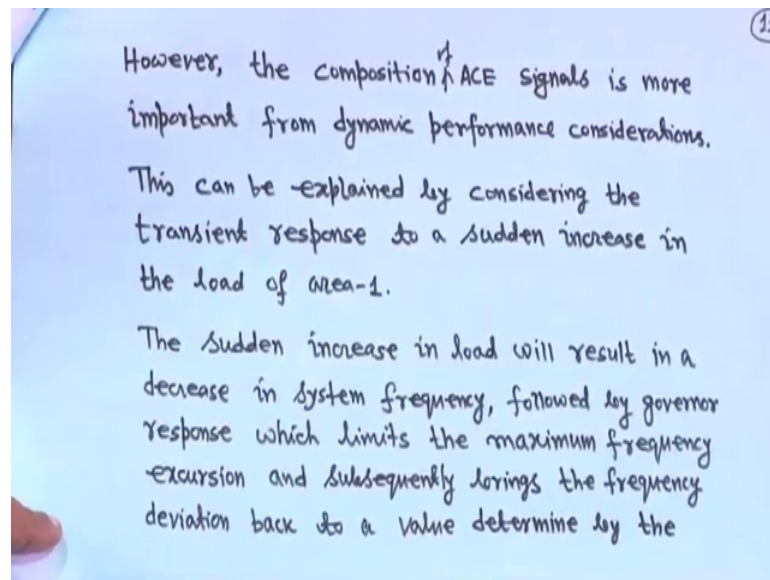 However, the composition of ACE signals is more
important from dynamic performance considerations.
This can be explained by considering the
transient response to a sudden increase in
the load of area-1.
The sudden increase in load will result in a
decrease in system frequency, followed by governor
response which limits the maximum frequency
excursion and subsequently brings the frequency
deviation back to a value determine by the